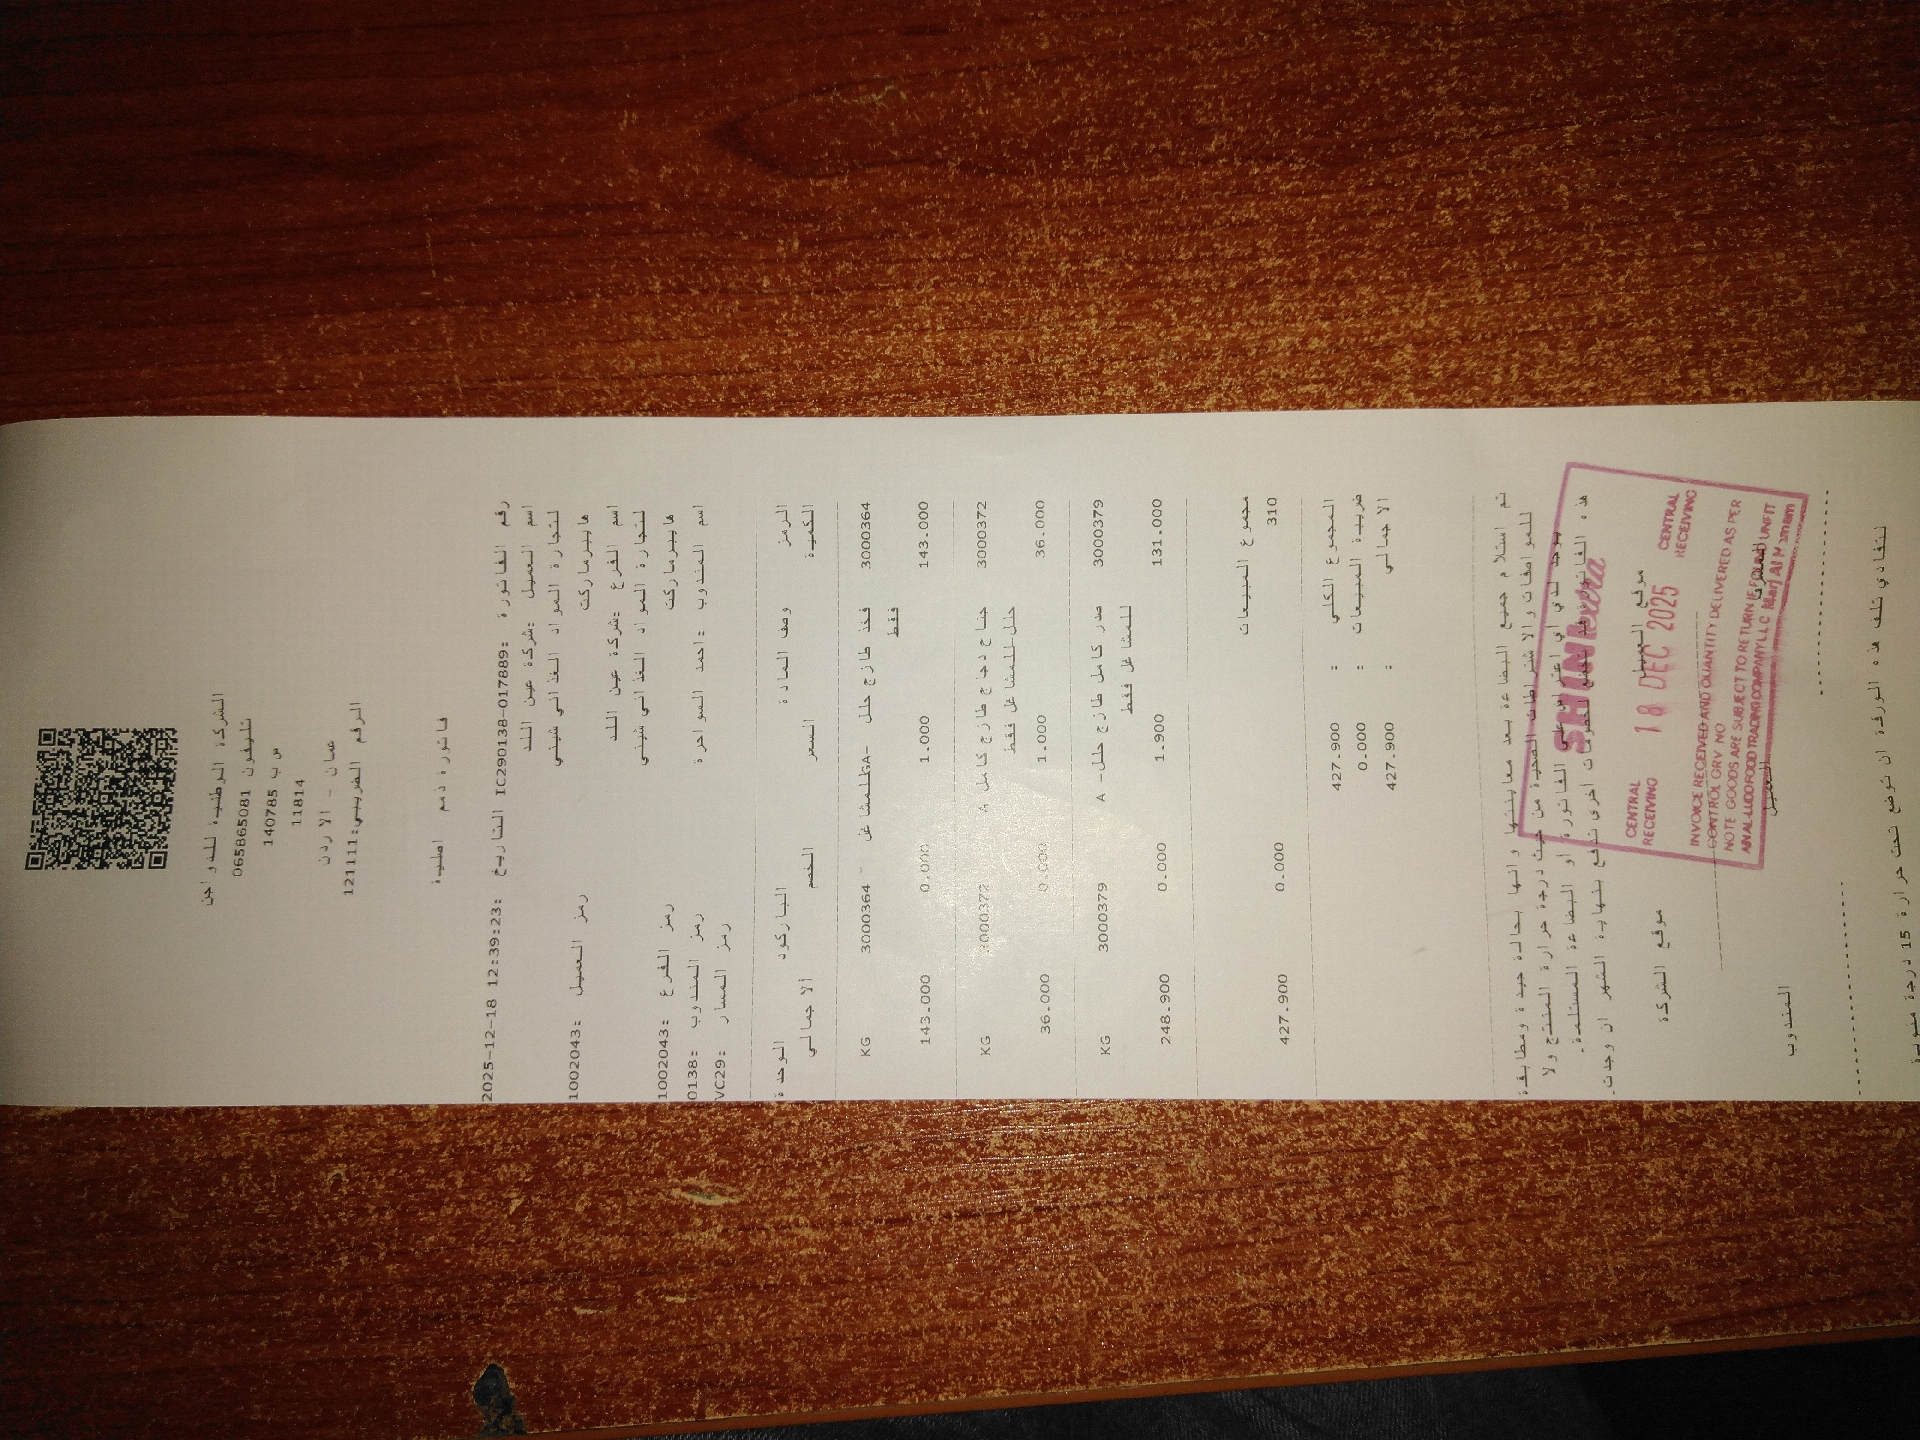 الشركة الوطنية للدواجن
تليفون 065865081
ص ب 140785
111814
عمان - الاردن
الرقم الضريبي:121111
فاتورة ذمم اصلية
رقم الفاتورة :IC290138-017889 التاريخ :2025-12-18 12:39:23
اسم العميل :شركة عين اللد
لتجارة المواد الغذائي شيني
هايبرماركت رمز العميل :1002043
اسم الفرع :شركة عين اللد
لتجارة المواد الغذائي شيني
هايبرماركت رمز الفرع :1002043
اسم المندوب :احمد السواحرة رمز المندوب :0138
رمز المسار :VC29
الرمز وصف المادة الباركود الوحدة
الكمية السعر الخصم الاجمالي
3000364 فخذ طازج حلل -A للمشاغل 3000364 KG
فقط
143.000 1.000 0.000 143.000
3000372 جناح دجاج طازج كامل A 3000372 KG
حلل-للمشاغل فقط
36.000 1.000 0.000 36.000
3000379 صدر كامل طازج حلل- A 3000379 KG
للمشاغل فقط
131.000 1.900 0.000 248.900
مجموع المبيعات
310 0.000 427.900
المجموع الكلي : 427.900
ضريبة المبيعات : 0.000
الاجمالي : 427.900
تم استلام جميع البضاعة بعد معاينتها وانها بحالة جيدة ومطابقة
للمواصفات والاشتراطات الصحية من حيث درجة حرارة المنتج ولا
يوجد لدي اي اعتراض على الفاتورة او البضاعة المستلمة.
هذه الفاتورة قد تخضع لخصومات اخرى تدفع بنهاية الشهر ان وجدت.
SHINI
CENTRAL RECEIVING
18 DEC 2025
CENTRAL RECEIVING
INVOICE RECEIVED AND QUANTITY DELIVERED AS PER
CONTROL GRV NO
NOTE GOODS ARE SUBJECT TO RETURN IF FOUND UNFIT
AIN AL-LUDD FOOD TRADING COMPANY LLC Marj Al Hamam
موقع العميل موقع الشركة
العميل المندوب
لتفادي تلف هذه الورقة ان توضع تحت حرارة 15 درجة مئوية